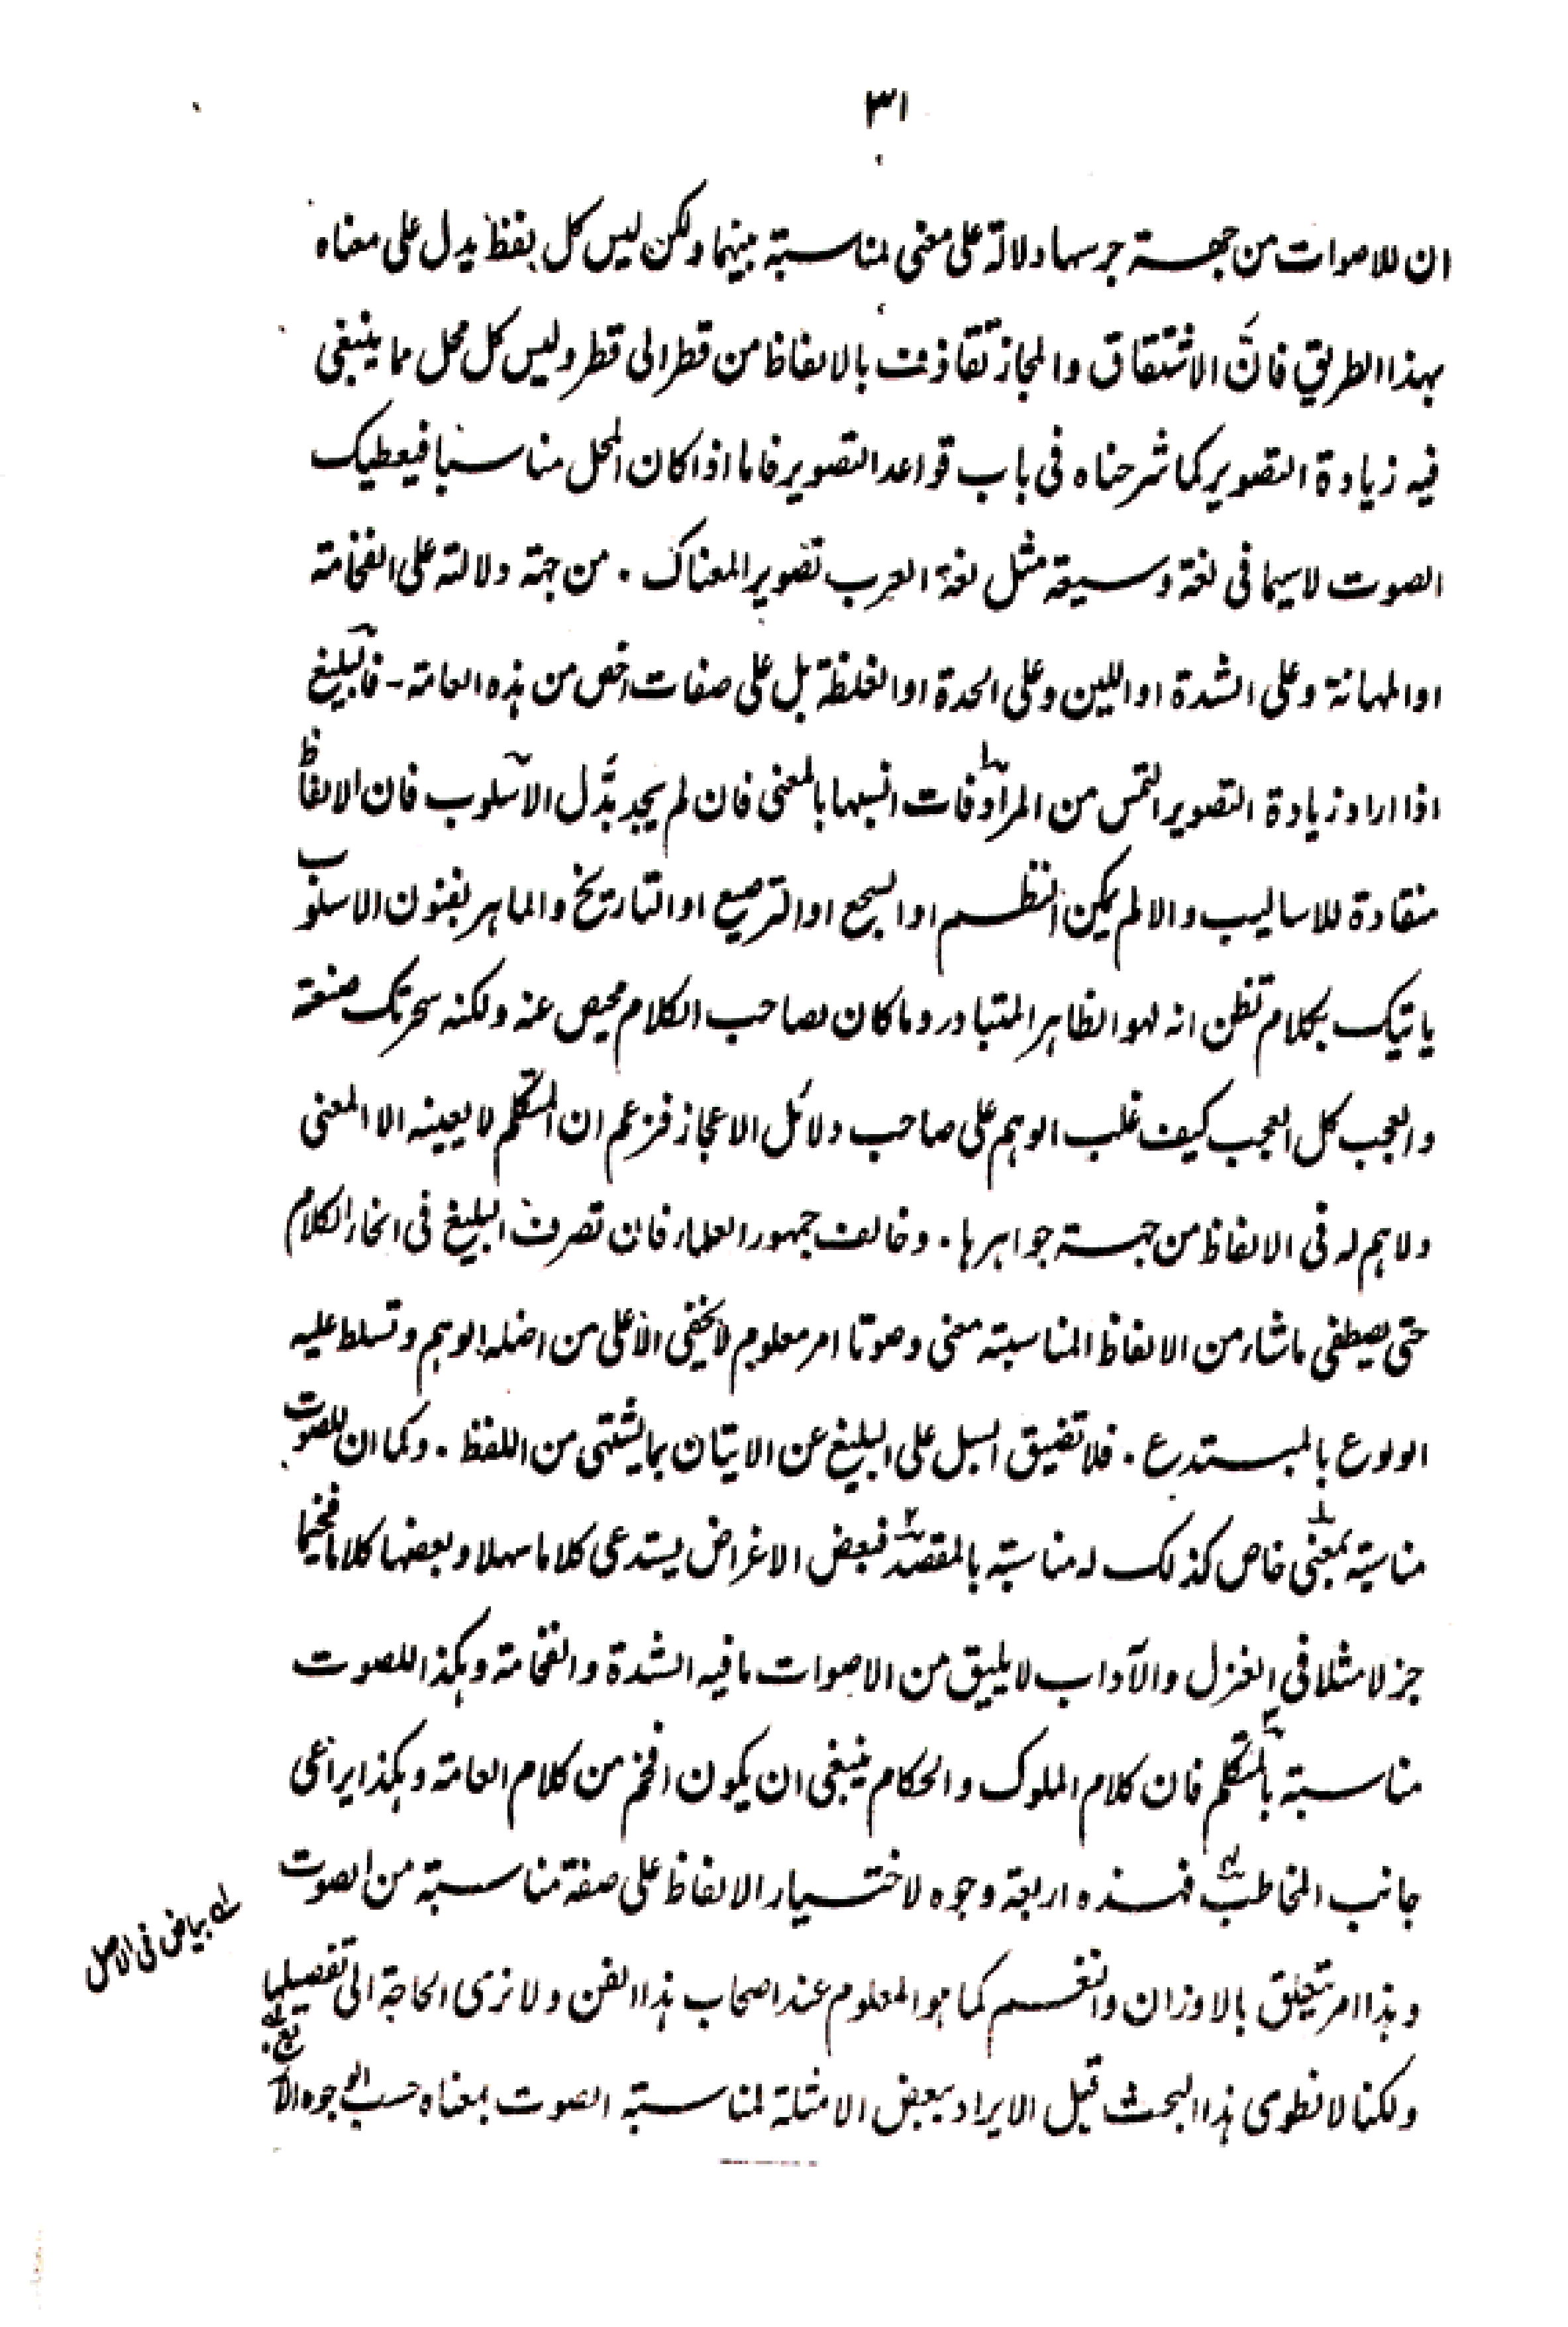 ٣١
ان للاصوات من جهة جرسها دلالة على معنى لمناسبة بينهما ولكن ليس كل لفظ يدل على معناه
بهذا الطريق فانّ الاشتقاق والمجاز تقاذفت بالالفاظ من قطر الى قطر وليس كل محل مما ينبغى
فيه زيادة التصوير كما شرحناه فى باب قواعد التصوير فاما اذا كان المحل مناسبا فيعطيك
الصوت لاسيما فى لغة وسيعة مثل لغة العرب تصوير المعناك . من جهة دلالته على الفخامة
او المهانة وعلى الشدة او اللين وعلى الحدة او الغلظة بل على صفات اخص من هذه العامة - فالبليغ
اذا اراد زيادة التصوير التمس من المرادفات انسبها بالمعنى فان لم يجد بدّل الاسلوب فان الالفاظ
منقادة للاساليب والا لم يمكن النظم او السجع او الترصيع او التاريخ والماهر بفنون الاسلوب
ياتيك بكلام تظن انه لهو الظاهر المتبادر وما كان لصاحب الكلام محيص عنه ولكنه سحرتك صنعته
والعجب كل العجب كيف غلب الوهم على صاحب دلائل الاعجاز فزعم ان المتكلم لا يعينه الا المعنى
ولا هم له فى الالفاظ من جهة جواهرها . وخالف جمهور العلماء فان تصرف البليغ فى انحاء الكلام
حتى يصطفى ما شاء من الالفاظ المناسبة معنى وصوتا امر معلوم لا يخفى الا على من اضله الوهم وتسلط عليه
الولوع بالمبتدع . فلا تضيق السبل على البليغ عن الاتيان بما يشتهى من اللفظ . وكما ان للصوت
مناسبة بمعنى خاص كذلك له مناسبة بالمقصد فبعض الاغراض يستدعى كلاما سهلا وبعضها كلاما فخيما
جزلا مثلا فى الغزل والآداب لا يليق من الاصوات ما فيه الشدة والفخامة وهكذا للصوت
مناسبة بالمتكلم فان كلام الملوك والحكام ينبغى ان يكون افخم من كلام العامة وهكذا يراعى
جانب المخاطب فهذه اربعة وجوه لاختيار الالفاظ على صفة مناسبة من الصوت
وهذا امر يتعلق بالاوزان والنغم كما هو المعلوم عند اصحاب هذا الفن ولا نرى الحاجة الى تفصيلها
ولكنا لا نطوى هذا البحث قبل الايراد ببعض الامثلة لمناسبة الصوت بمعناه حسب الوجوه
له بياض فى الاصل